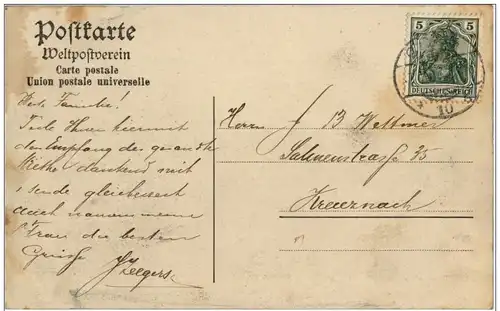 Postkarte
Weltpostverein
Carte postale
Union postale universelle
5 5
DEUTSCHES REICH
10
Familie!
Teile Ihnen hiermit
den Empfang der gesandten
dankend mit
sende gleichzeit
auch namens meiner
Frau die besten
Grüsse
Zeegers
Herrn B Wettmer
Salinenstrasse 35
Kreuznach